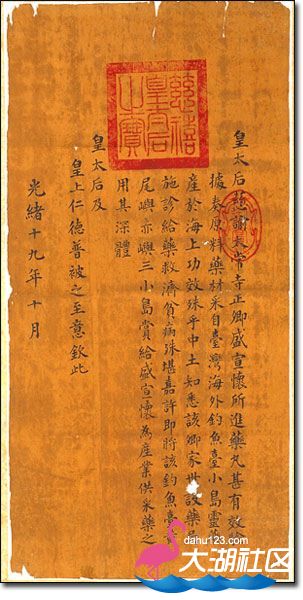 皇太后慈諭太常寺正卿盛宣懷所進藥丸甚有效
據奏原料藥材采自臺灣海外釣魚臺小島靈藥
產於海上功效殊乎中土知悉該卿家世設藥局
施診給藥救濟貧病殊堪嘉許即將該釣魚臺
尾嶼赤嶼三小島賞給盛宣懷為產業供采藥之
用其深體
皇太后及
皇上仁德普被之至意欽此
光緒十九年十月
慈禧
皇太后
之寶
dahu123.com
大湖社区